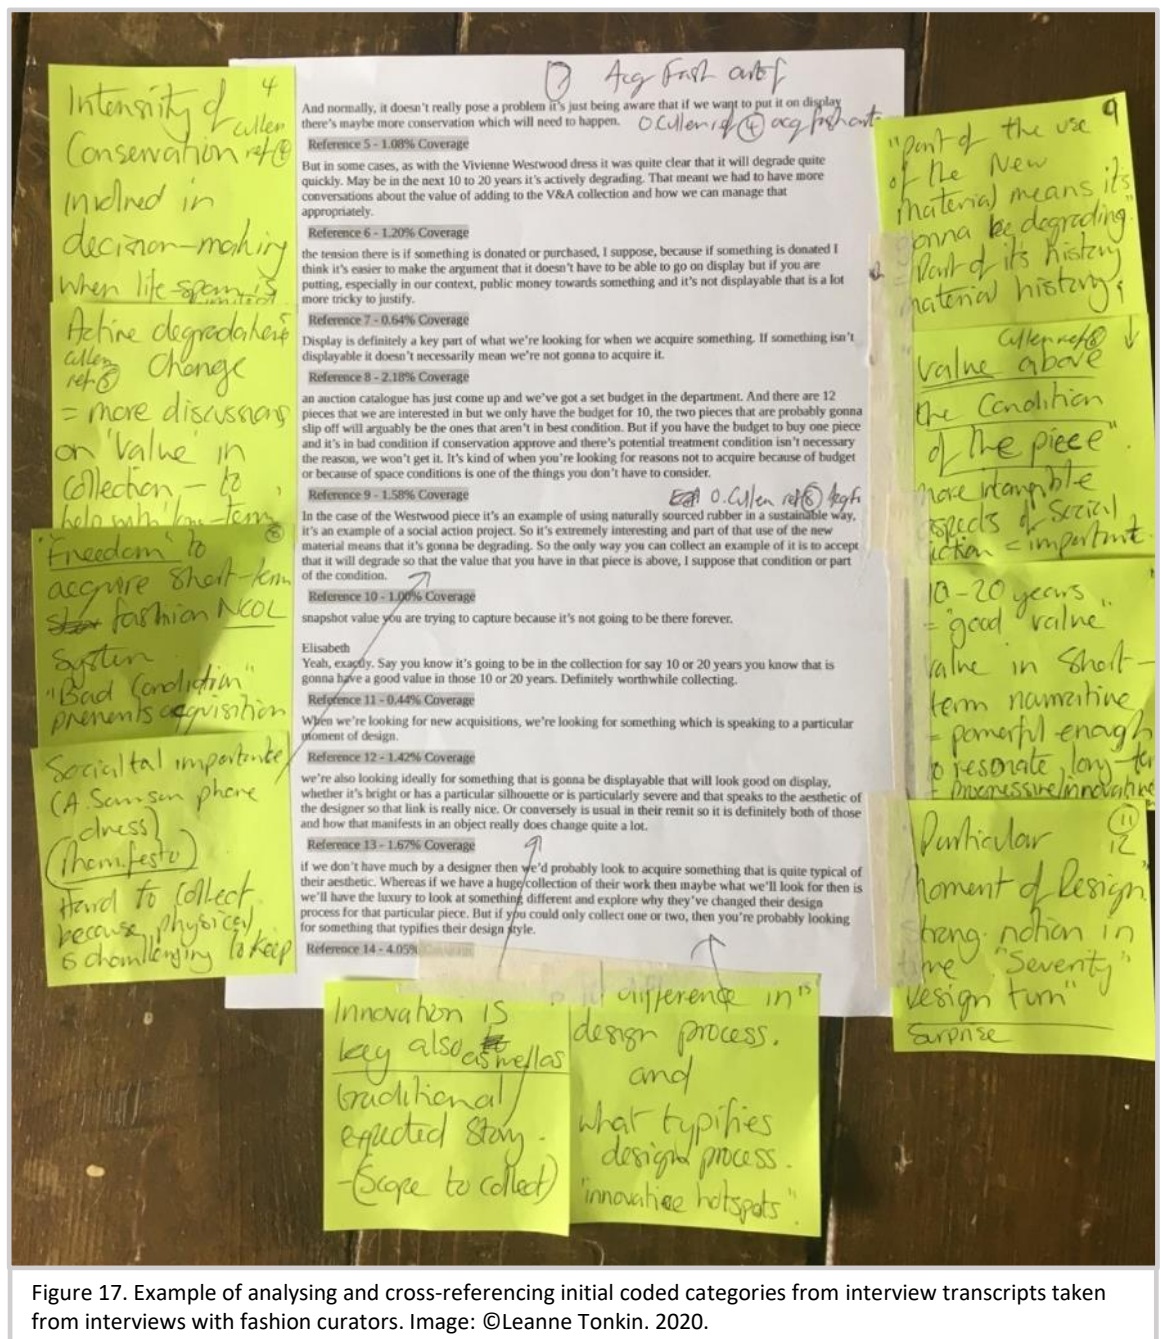 Acq Fash artf
And normally, it doesn't really pose a problem it's just being aware that if we want to put it on display
there's maybe more conservation which will need to happen.
O.Cullen ref ④ acq fash art
Reference 5 - 1.08% Coverage
But in some cases, as with the Vivienne Westwood dress it was quite clear that it will degrade quite
quickly. May be in the next 10 to 20 years it's actively degrading. That meant we had to have more
conversations about the value of adding to the V&A collection and how we can manage that
appropriately.
Reference 6 - 1.20% Coverage
the tension there is if something is donated or purchased, I suppose, because if something is donated I
think it's easier to make the argument that it doesn't have to be able to go on display but if you are
putting, especially in our context, public money towards something and it's not displayable that is a lot
more tricky to justify.
Reference 7 - 0.64% Coverage
Display is definitely a key part of what we're looking for when we acquire something. If something isn't
displayable it doesn't necessarily mean we're not gonna to acquire it.
Reference 8 - 2.18% Coverage
an auction catalogue has just come up and we've got a set budget in the department. And there are 12
pieces that we are interested in but we only have the budget for 10, the two pieces that are probably gonna
slip off will arguably be the ones that aren't in best condition. But if you have the budget to buy one piece
and it's in bad condition if conservation approve and there's potential treatment condition isn't necessary
the reason, we won't get it. It's kind of when you're looking for reasons not to acquire because of budget
or because of space conditions is one of the things you don't have to consider.
Reference 9 - 1.58% Coverage
O.Cullen ref ⑧
In the case of the Westwood piece it's an example of using naturally sourced rubber in a sustainable way,
it's an example of a social action project. So it's extremely interesting and part of that use of the new
material means that it's gonna be degrading. So the only way you can collect an example of it is to accept
that it will degrade so that the value that you have in that piece is above, I suppose that condition or part
of the condition.
Reference 10 - 1.00% Coverage
snapshot value you are trying to capture because it's not going to be there forever.
Elisabeth
Yeah, exactly. Say you know it's going to be in the collection for say 10 or 20 years you know that is
gonna have a good value in those 10 or 20 years. Definitely worthwhile collecting.
Reference 11 - 0.44% Coverage
When we're looking for new acquisitions, we're looking for something which is speaking to a particular
moment of design.
Reference 12 - 1.42% Coverage
we're also looking ideally for something that is gonna be displayable that will look good on display,
whether it's bright or has a particular silhouette or is particularly severe and that speaks to the aesthetic of
the designer so that link is really nice. Or conversely is usual in their remit so it is definitely both of those
and how that manifests in an object really does change quite a lot.
Reference 13 - 1.67% Coverage
if we don't have much by a designer then we'd probably look to acquire something that is quite typical of
their aesthetic. Whereas if we have a huge collection of their work then maybe what we'll look for then is
we'll have the luxury to look at something different and explore why they've changed their design
process for that particular piece. But if you could only collect one or two, then you're probably looking
for something that typifies their design style.
Reference 14 - 4.05%
4
Intensity of
cullen
Conservation ref ④
involved in
decision-making
when life-span is
Active degradation
cullen
ref ⑤ change
= more discussions
on 'Value' in
collection, - to
help with long-term
"Freedom" to
acquire short-term
fashion NCOL
System
"Bad Condition"
prevents acquisition
Societal importance
(A. Samson phone
dress)
(Them.festo)
Hard to collect
because physical
is challenging to keep
9
"part of the use
of the New
material means its
gonna be degrading"
= Part of its history
material history
Cullen ref ⑧
value above
the Condition
of the piece".
more intangible
aspects of social
action = important.
10-20 years
= "good value"
value in short-
term narrative
= powerful enough
to resonate long-ter
- progressive/innovative
⑪
12
Particular
moment of Design"
strong notion in
time "Severity"
design turn"
Surprise
Innovation is
key also as well as
traditional/
expected story.
-(Scope to collect)
difference in
design process.
and
what typifies
design process.
"innovative hotspots".
Figure 17. Example of analysing and cross-referencing initial coded categories from interview transcripts taken
from interviews with fashion curators. Image: ©Leanne Tonkin. 2020.